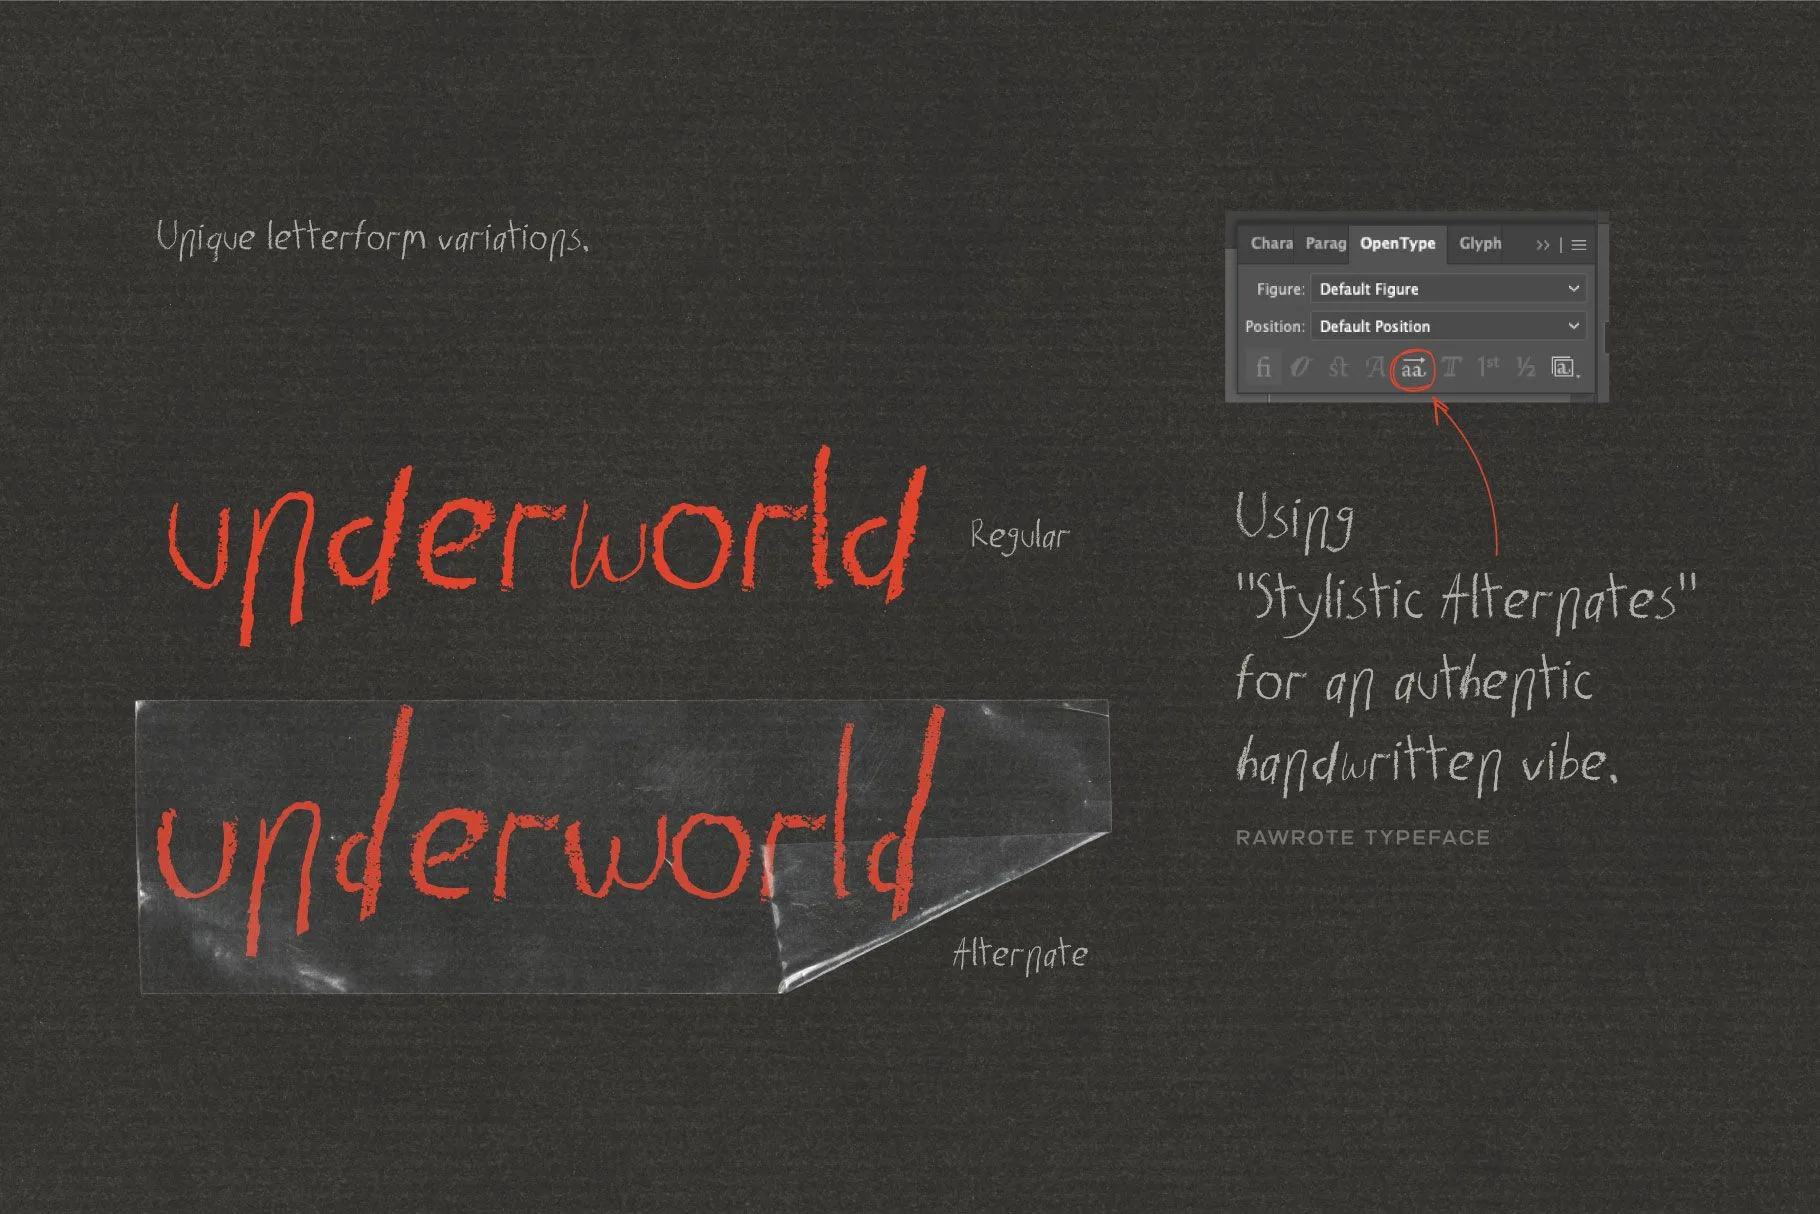 Unique letterform variations.
underworld
Regular
underworld
Alternate
Chara Parag OpenType Glyph
Figure: Default Figure
Position: Default Position
fi st A aa T 1st ½ a
Using
"Stylistic Alternates"
for an authentic
handwritten vibe.
RAWROTE TYPEFACE